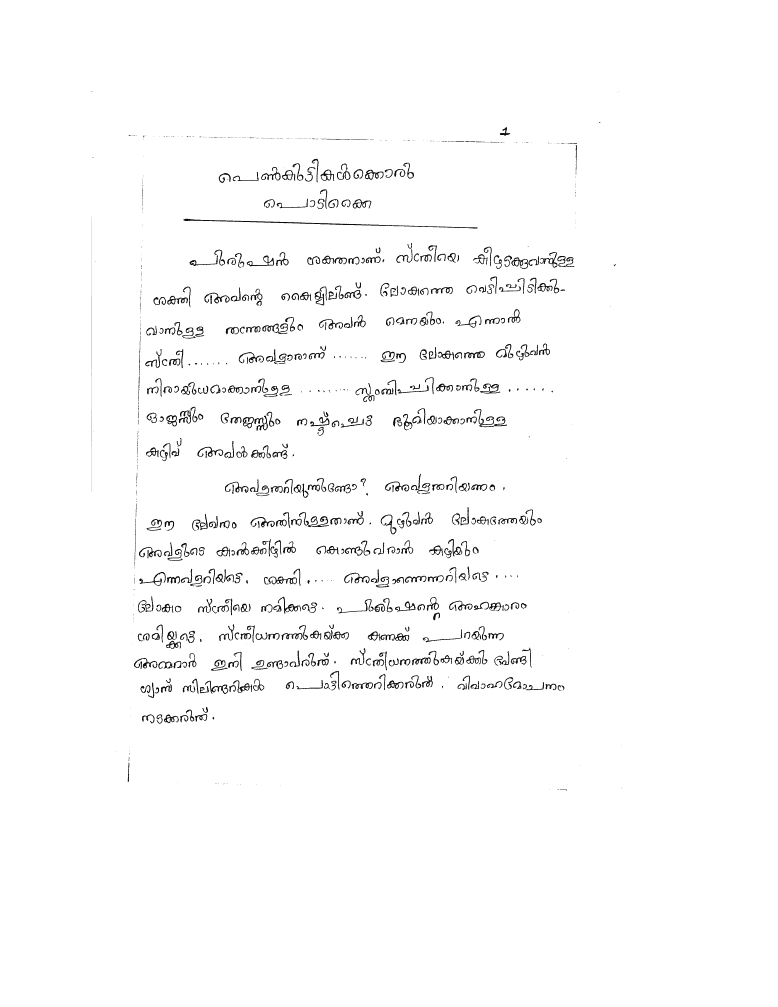 1
പെൺകുട്ടികൾക്കൊരു
പൊടിക്കൈ
പുരുഷൻ ശക്തനാണ്. സ്ത്രീയെ കീഴ്പെടുത്തുവാനുള്ള
ശക്തി അവന്റെ കൈയ്യിലുണ്ട്. ലോകത്തെ വെട്ടിപ്പിടിക്കു-
വാനുള്ള തന്ത്രങ്ങളും അവൻ മെനയും. എന്നാൽ
സ്ത്രീ ....... അവളാരാണ് ...... ഈ ലോകത്തെ മുഴുവൻ
നിരായുധമാക്കാനുള്ള ......... സ്തംഭിപ്പിക്കാനുള്ള ......
ഓജസ്സും തേജസ്സും നഷ്ടപ്പെട്ട ഭൂമിയാക്കാനുള്ള
കഴിവ് അവൾക്കുണ്ട്.
അവളതറിയുന്നുണ്ടോ? അവളതറിയണം.
ഈ ലേഖനം അതിനുള്ളതാണ്. മുഴുവൻ ലോകത്തേയും
അവളുടെ കാൽക്കീഴിൽ കൊണ്ടുവരാൻ കഴിയും
എന്നവളറിയട്ടെ. ശക്തി .... അവളാണെന്നറിയട്ടെ ....
ലോകം സ്ത്രീയെ നമിക്കട്ടെ. പുരുഷന്റെ അഹങ്കാരം
ശമിയ്ക്കട്ടെ. സ്ത്രീധനത്തുകയ്ക്ക കണക്ക് പറയുന്ന
അമ്മമാർ ഇനി ഉണ്ടാവരുത്. സ്ത്രീധനത്തുകയ്ക്കു വേണ്ടി
ഗ്യാസ് സിലിണ്ടറുകൾ പൊട്ടിത്തെറിക്കരുത്. വിവാഹമോചനം
നടക്കരുത്.